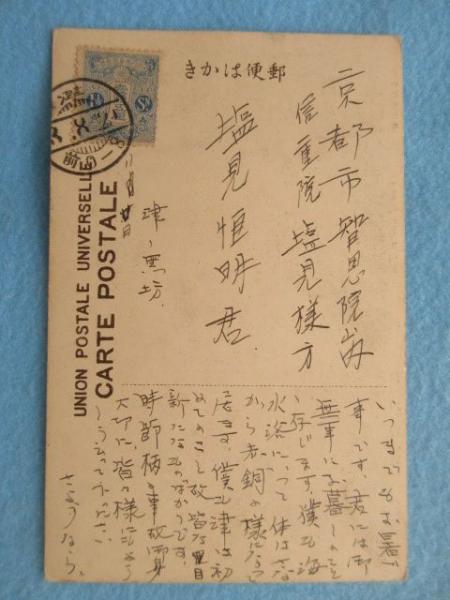 郵便はかき
京都市智恩院内
信重院 塩見様方
塩見恒明君
津、
UNION POSTALE UNIVERSELLE
CARTE POSTALE
いつまでもお暑い
事です。君には御
無事にお暮しのこと
と存じます。僕も海
水浴にいって体はまる
から赤銅の様になって
居ます。僕も津は初
めてのこと故皆な目
新になものばかりです。
時節柄の事故御身
大切に、皆々様にもよろ
しう云って下さい
さようなら。